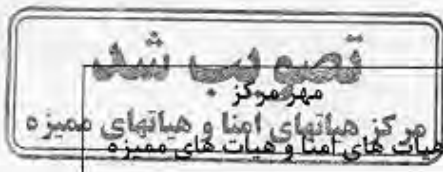 تصویب شد
مهر مرکز
مرکز هیاتهای امنا و هیاتهای ممیزه
هیات های امنا و هیات های ممیزه